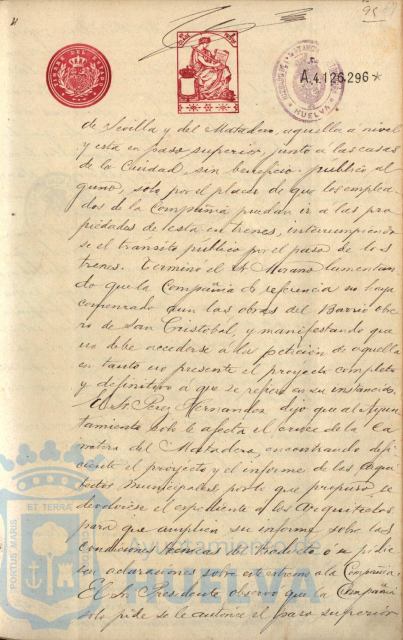 95
TIMBRE DEL ESTADO
A.4.126.296*
HUELVA
de Sevilla y del Matadero, aquella a nivel
y esta en paso superior, junto a las casas
de la Ciudad, sin beneficio público al
guno, solo por el placer de que los emplea
dos de la Compañía puedan ir a las pro
piedades de esta en trenes, interrumpiendo
se el tránsito público por el paso de los
trenes. Terminó el Sr Morano lamentan
do que la Compañía de referencia no haya
comenzado aun las obras del Barrio obre
ro de San Cristóbal, y manifestando que
no debe accederse á la petición de aquella
en tanto no presente el proyecto completo
y definitivo a que se refiere en su instancia.
El Sr Perez Hernandez dijo que al Ayun
tamiento solo le afecta el cruce de la Ca
rretera del Matadero, encontrando defi
ciente el proyecto y el informe de los Arqui
tectos Municipales por lo que propuso, se
devolviese el expediente a los Arquitectos
para que amplíen su informe sobre las
condiciones técnicas del Viaducto o se pidie
sen aclaraciones sobre este extremo a la Compañía.
El Sr Presidente observó que la Compañía
solo pide se le autorice el paso superior
PORTUS MARIS
ET TERRA
Ayuntamiento de
HUELVA